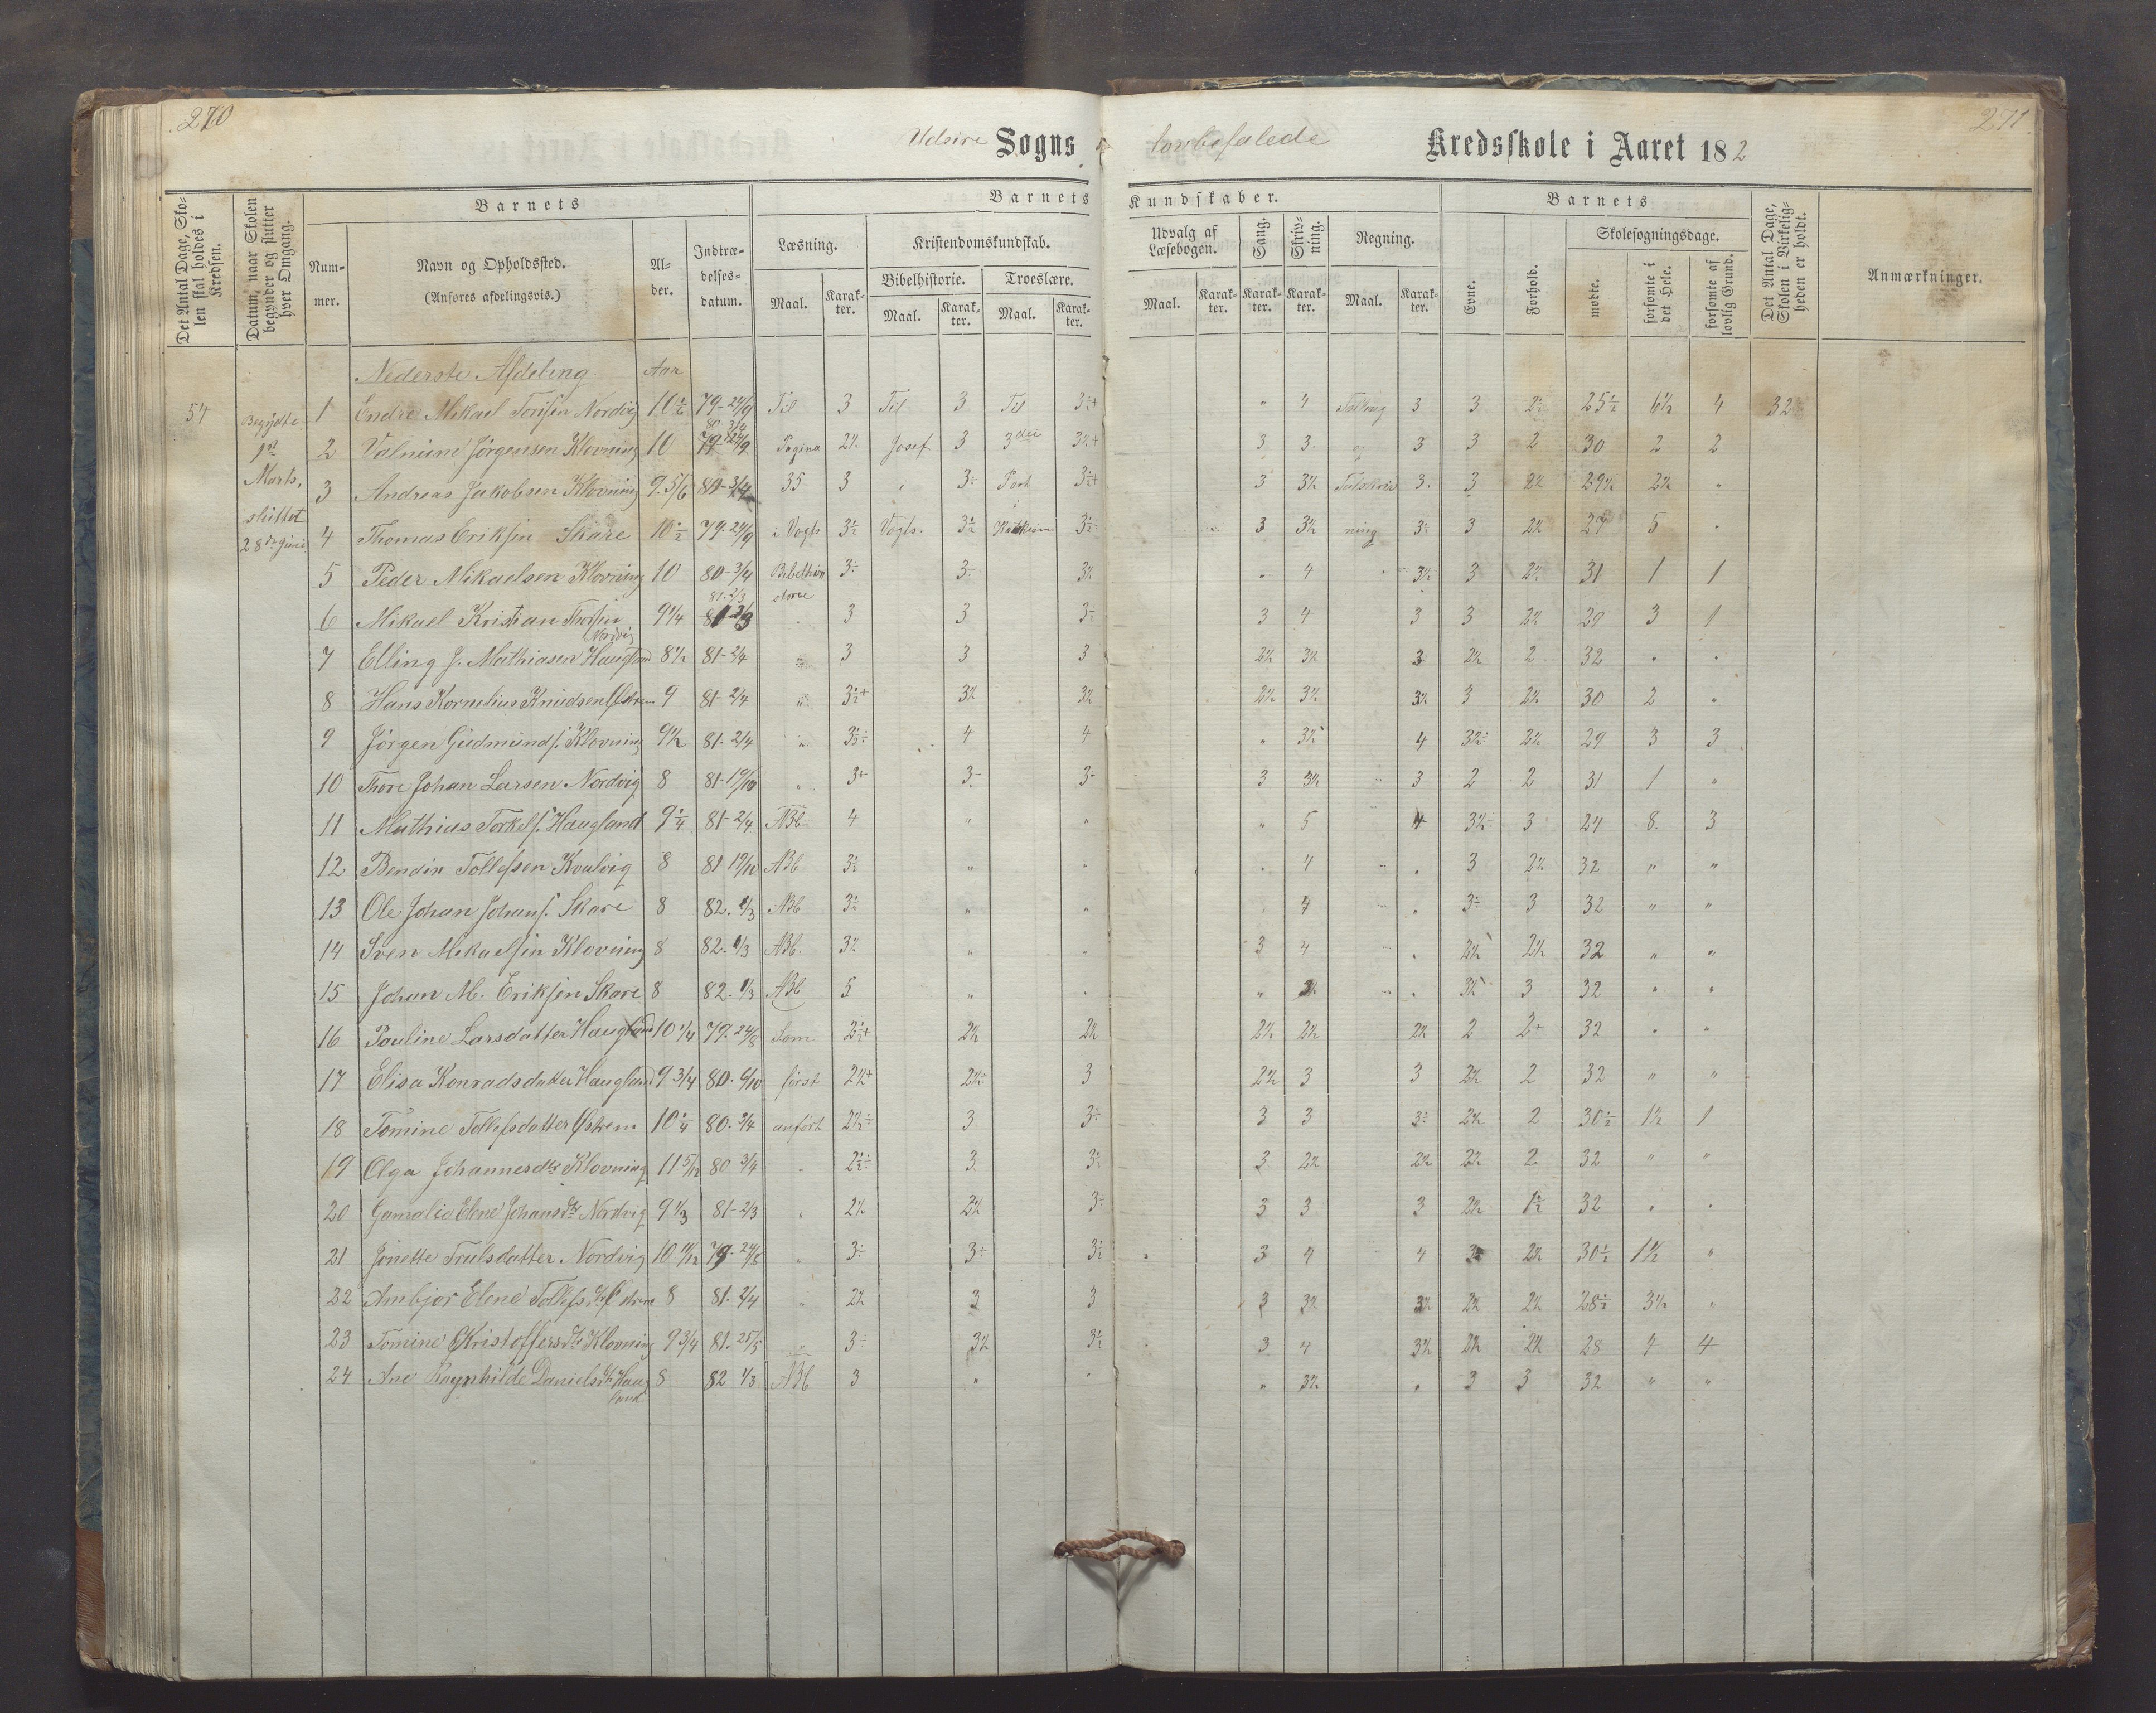 270
271
Udsire Sogns lovbefalede Kredsskole i Aaret 182
Det Antal Dage, Skolen skal holdes i Kredsen.
Datum, naar Skolen begynder og slutter hver Omgang.
Barnets
Nummer.
Navn og Opholdssted.
(Anføres afdelingsvis.)
Alder.
Indtrædelsesdatum.
Barnets Kundskaber.
Læsning.
Maal.
Karakter.
Kristendomskundskab.
Bibelhistorie.
Maal.
Karakter.
Troeslære.
Maal.
Karakter.
Udvalg af Læsebogen.
Maal.
Karakter.
Sang.
Karakter.
Skrivning.
Karakter.
Regning.
Maal.
Karakter.
Barnets
Evne.
Forhold.
Skolesøgningsdage.
mødte.
forsømte i det Hele.
forsømte af lovlig Grund.
Det Antal Dage, Skolen i Virkeligheden er holdt.
Anmærkninger.
Nederste Afdeling Aar
54 Begyndte 1 Endre Mikael Nordvig 79-24/9 Til 3 Til 3 Til " 4 3 3 25½ 6½ 4 32
1ste 2 Jørgensen Klovning 10 Pagina 2½ Josef 3 3die 3½+ 3 3 3 3 2 30 2 2
Marts, 3 Andreas Jakobsen Klovning 9 5/6 80-3/4 35 3 3÷ Part 3 3½ 3 3 2½ 29½ 2½ "
sluttet 28de Juni 4 Thomas Eriksen Skare 10½ 79-24/9 i Vogts 3½ Vogts. 3½ 3 3½ ning 3 2½ 27 5
5 Peder Mikaelsen Klovning 10 80-3/4 Bibelhistorie 3÷ 3÷ 3½ " 4 3½ 3 2½ 31 1 1
6 Mikael Kristian Nordvig 9¼ 81-2/3 3 3 3÷ 3 4 3 3 2½ 29 3 1
7 Elling J. Mathiasen Haugland 8½ 81-2/4 3 3 3 2½ 3½ 3 2½ 2 32
8 Hans Kornelius Knudsen Østrem 9 81-2/4 3½+ 3½ 3½ 2½ 3½ 3½ 3 2½ 30 2
9 Jørgen Gudmunds. Klovning 9½ 81-2/4 3½÷ 4 4 " 3½ 4 3½÷ 2½ 29 3 3
10 Thore Johan Larsen Nordvig 8 81-19/10 3+ 3÷ 3÷ 3 3½ 3 2 2 31 1 "
11 Mathias Torkels. Haugland 9¼ 81-2/4 ABb 4 " " " 5 4 3½ 3 24 8 3
12 Bendix Tollefsen Kvalvig 8 81-19/10 ABb 3½ 4 3 2½ 32 " "
13 Ole Johan Johans. Skare 8 82.1/3 ABb 3½ 4 3÷ 3 32 " "
14 Sven Mikaelsen Klovning 8 82.1/3 ABb. 3½ 3 4 2½ 32 " "
15 Johan M. Eriksen Skare 8 82.1/3 ABb 5 3½ 3 32 " "
16 Pauline Larsdatter Haugland 10¼ Som 2½+ 2½ 2½ 2½ 2½ 2½ 2 2+ 32
17 Elisa Konradsdatter Haugland 9 3/4 80. 6/10 først 2½+ 2½÷ 3 2½ 3 3 2½ 2 32 " "
18 Tomine Tollefsdatter Østrem 10¼ 80.3/4 anført 2½÷ 3 3÷ 3 3 3÷ 2½ 2 30½ 1½ 1
19 Olga Johannesdtr Klovning 11 5/12 80 3/4 2½÷ 3 3½ 3 2½ 2½ 2½ 2 32 " "
20 Gamalie Elene Johansdtr Nordvig 9 1/3 81-2/3 2½ 2½ 3÷ 3 3 3 2½ 1½ 32
21 Jonette Trulsdatter Nordvig 10 11/12 3÷ 3÷ 3½ 3 4 4 2½ 30½ 1½ "
22 Ambjor Elene Tollefsdtr 8 81.2/4 2½ 3 3 3 3½ 3½ 2½ 2½ 28½ 3½
23 Tomine Kristoffersdtr Klovning 9 3/4 81.25/5 3÷ 3½ 3½ 3 4 3½ 2½ 2½ 28 4 4
24 Ane Ragnhilde Danielsdtr Haugland 8 82 1/3 ABb 3 " " " 3½ " 3 3 32 " "